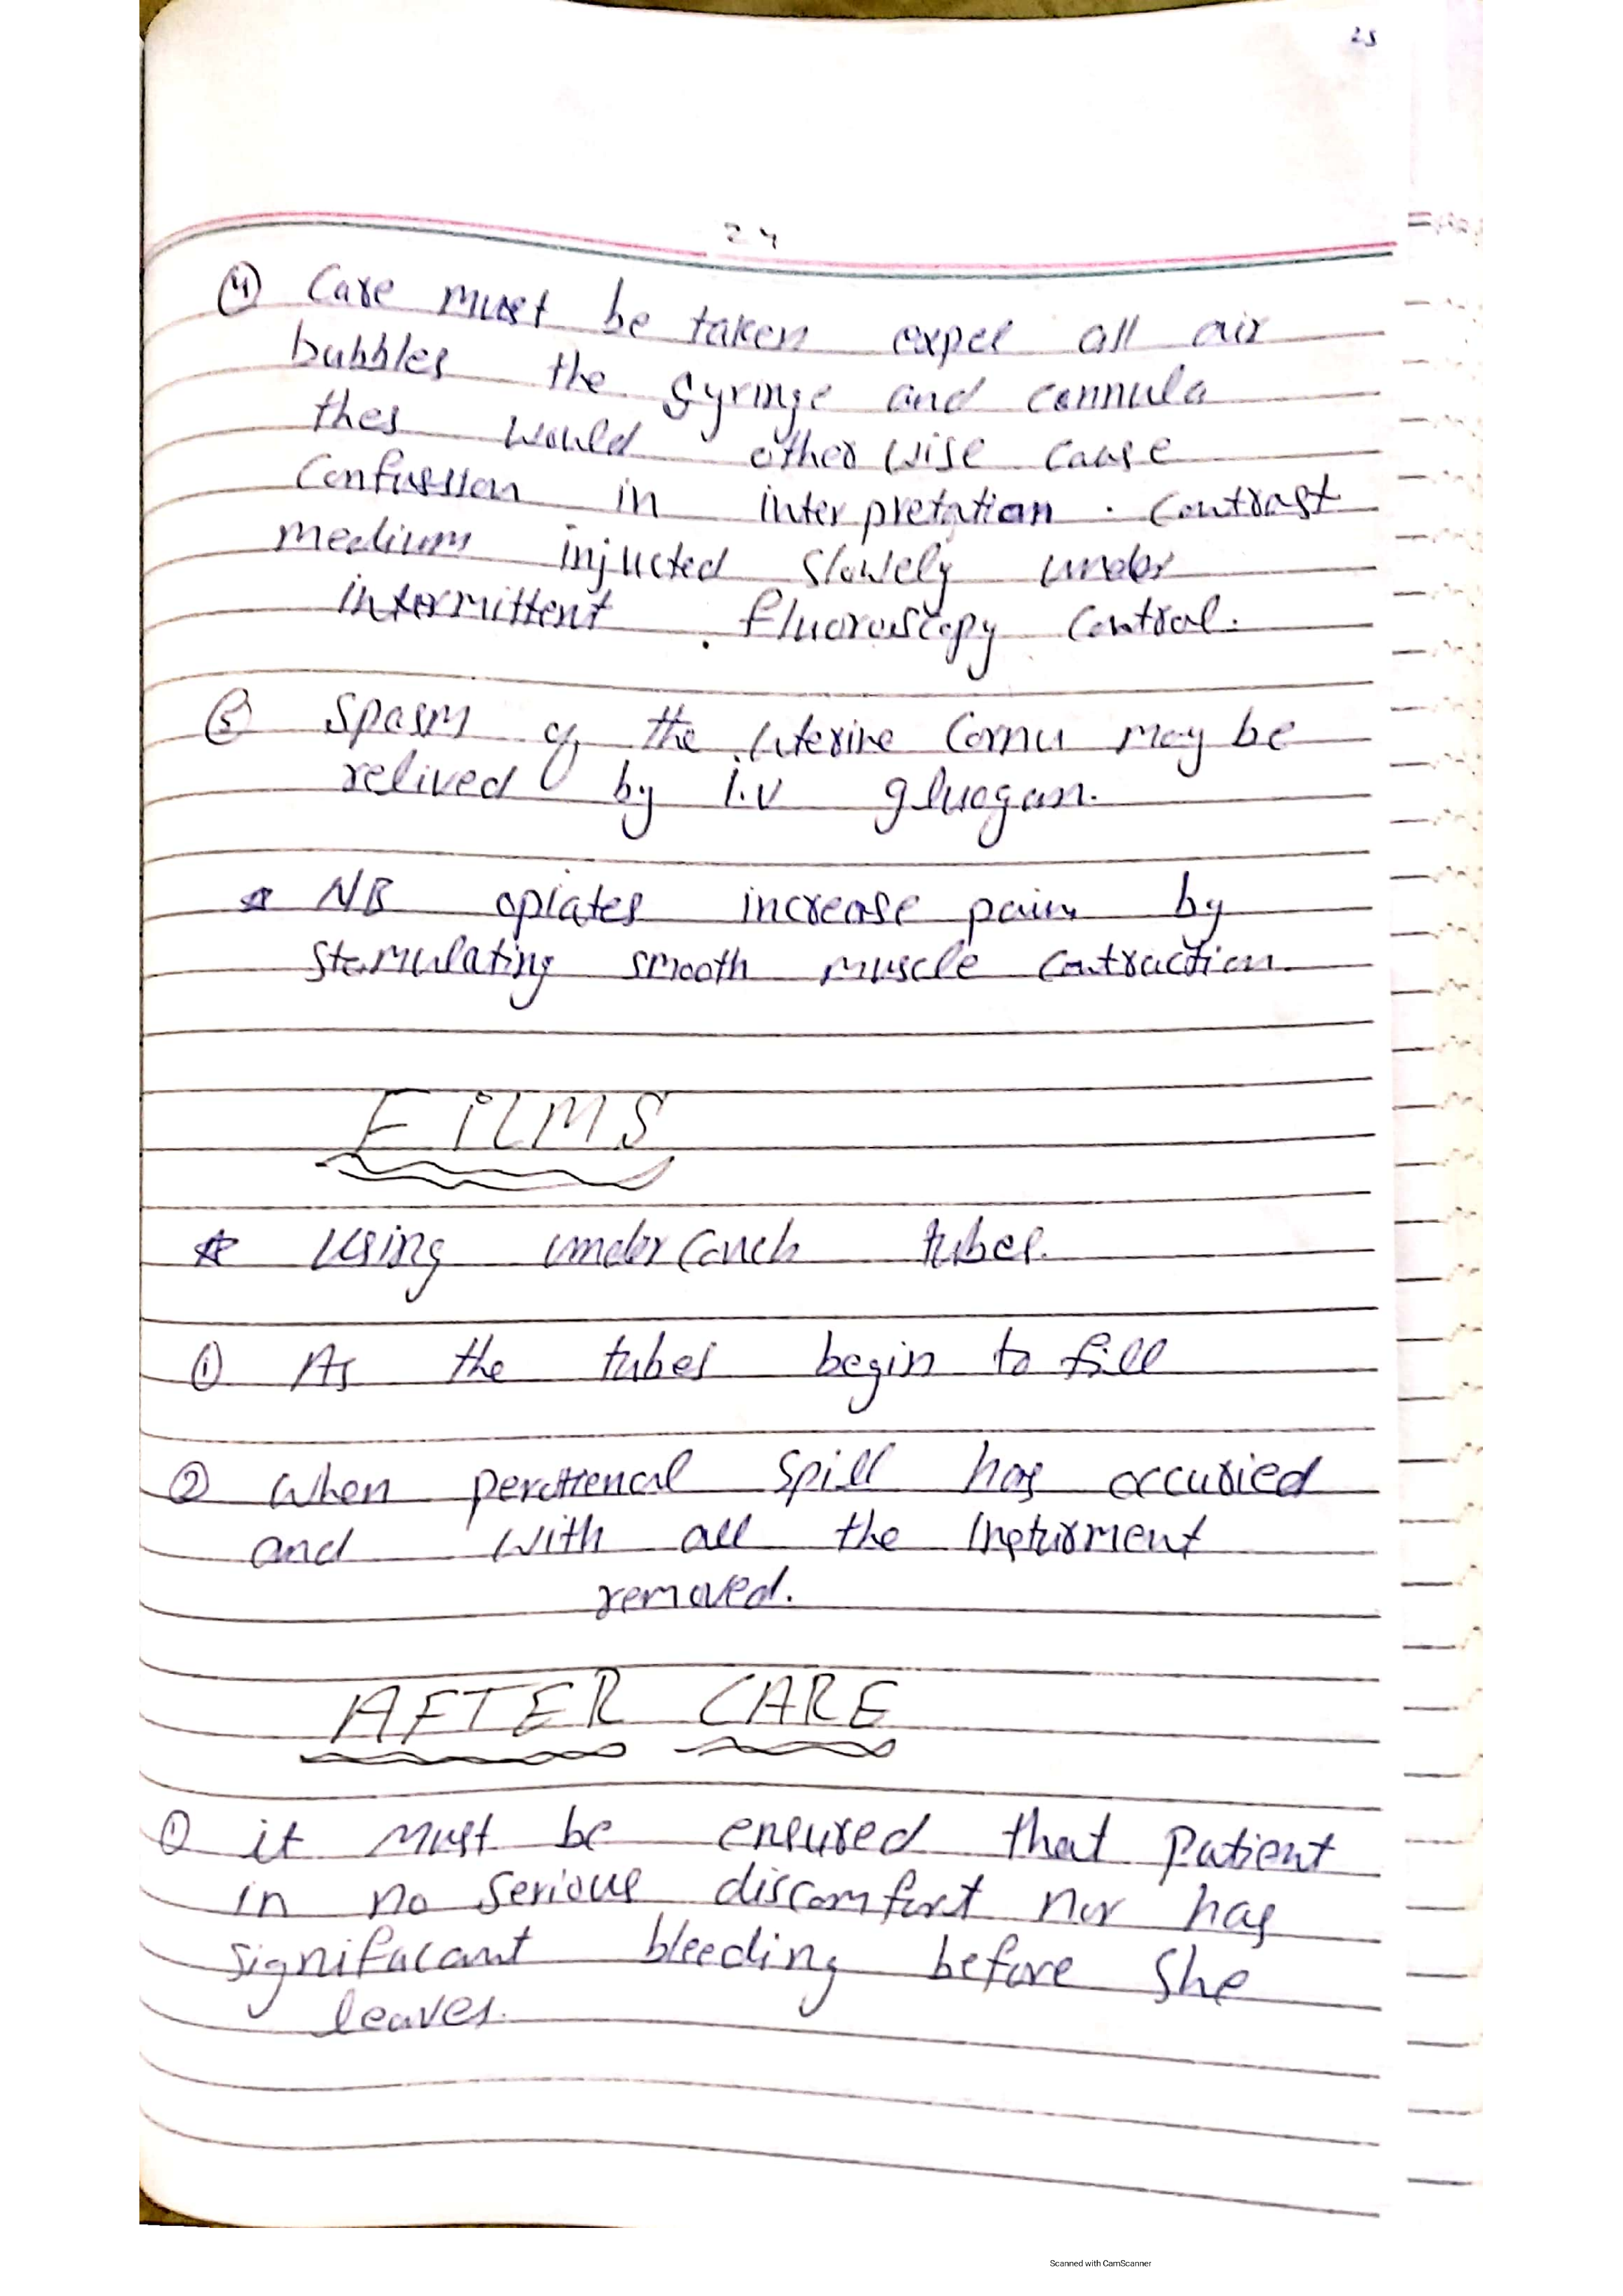 25
24
④ Care must be taken expel all air
bubbles the syringe and cannula
thes would other wise cause
Confussion in interpretation. Contrast
medium injucted slowely under
intermittent . fluoroscopy control.
⑤ Spasm of the uterine Cornu may be
relived by i.v gluogan.
* NB opiates increase pain by
stemulating smooth muscle contraction.
FiLMS
* Using under couch tubes.
① As the tubes begin to fill
② When perottencal spill has occuried
and with all the insturment
removed.
AFTER CARE
① it must be ensured that patient
in no serious discomfort nor has
signifacant bleeding before she
leaves.
Scanned with CamScanner